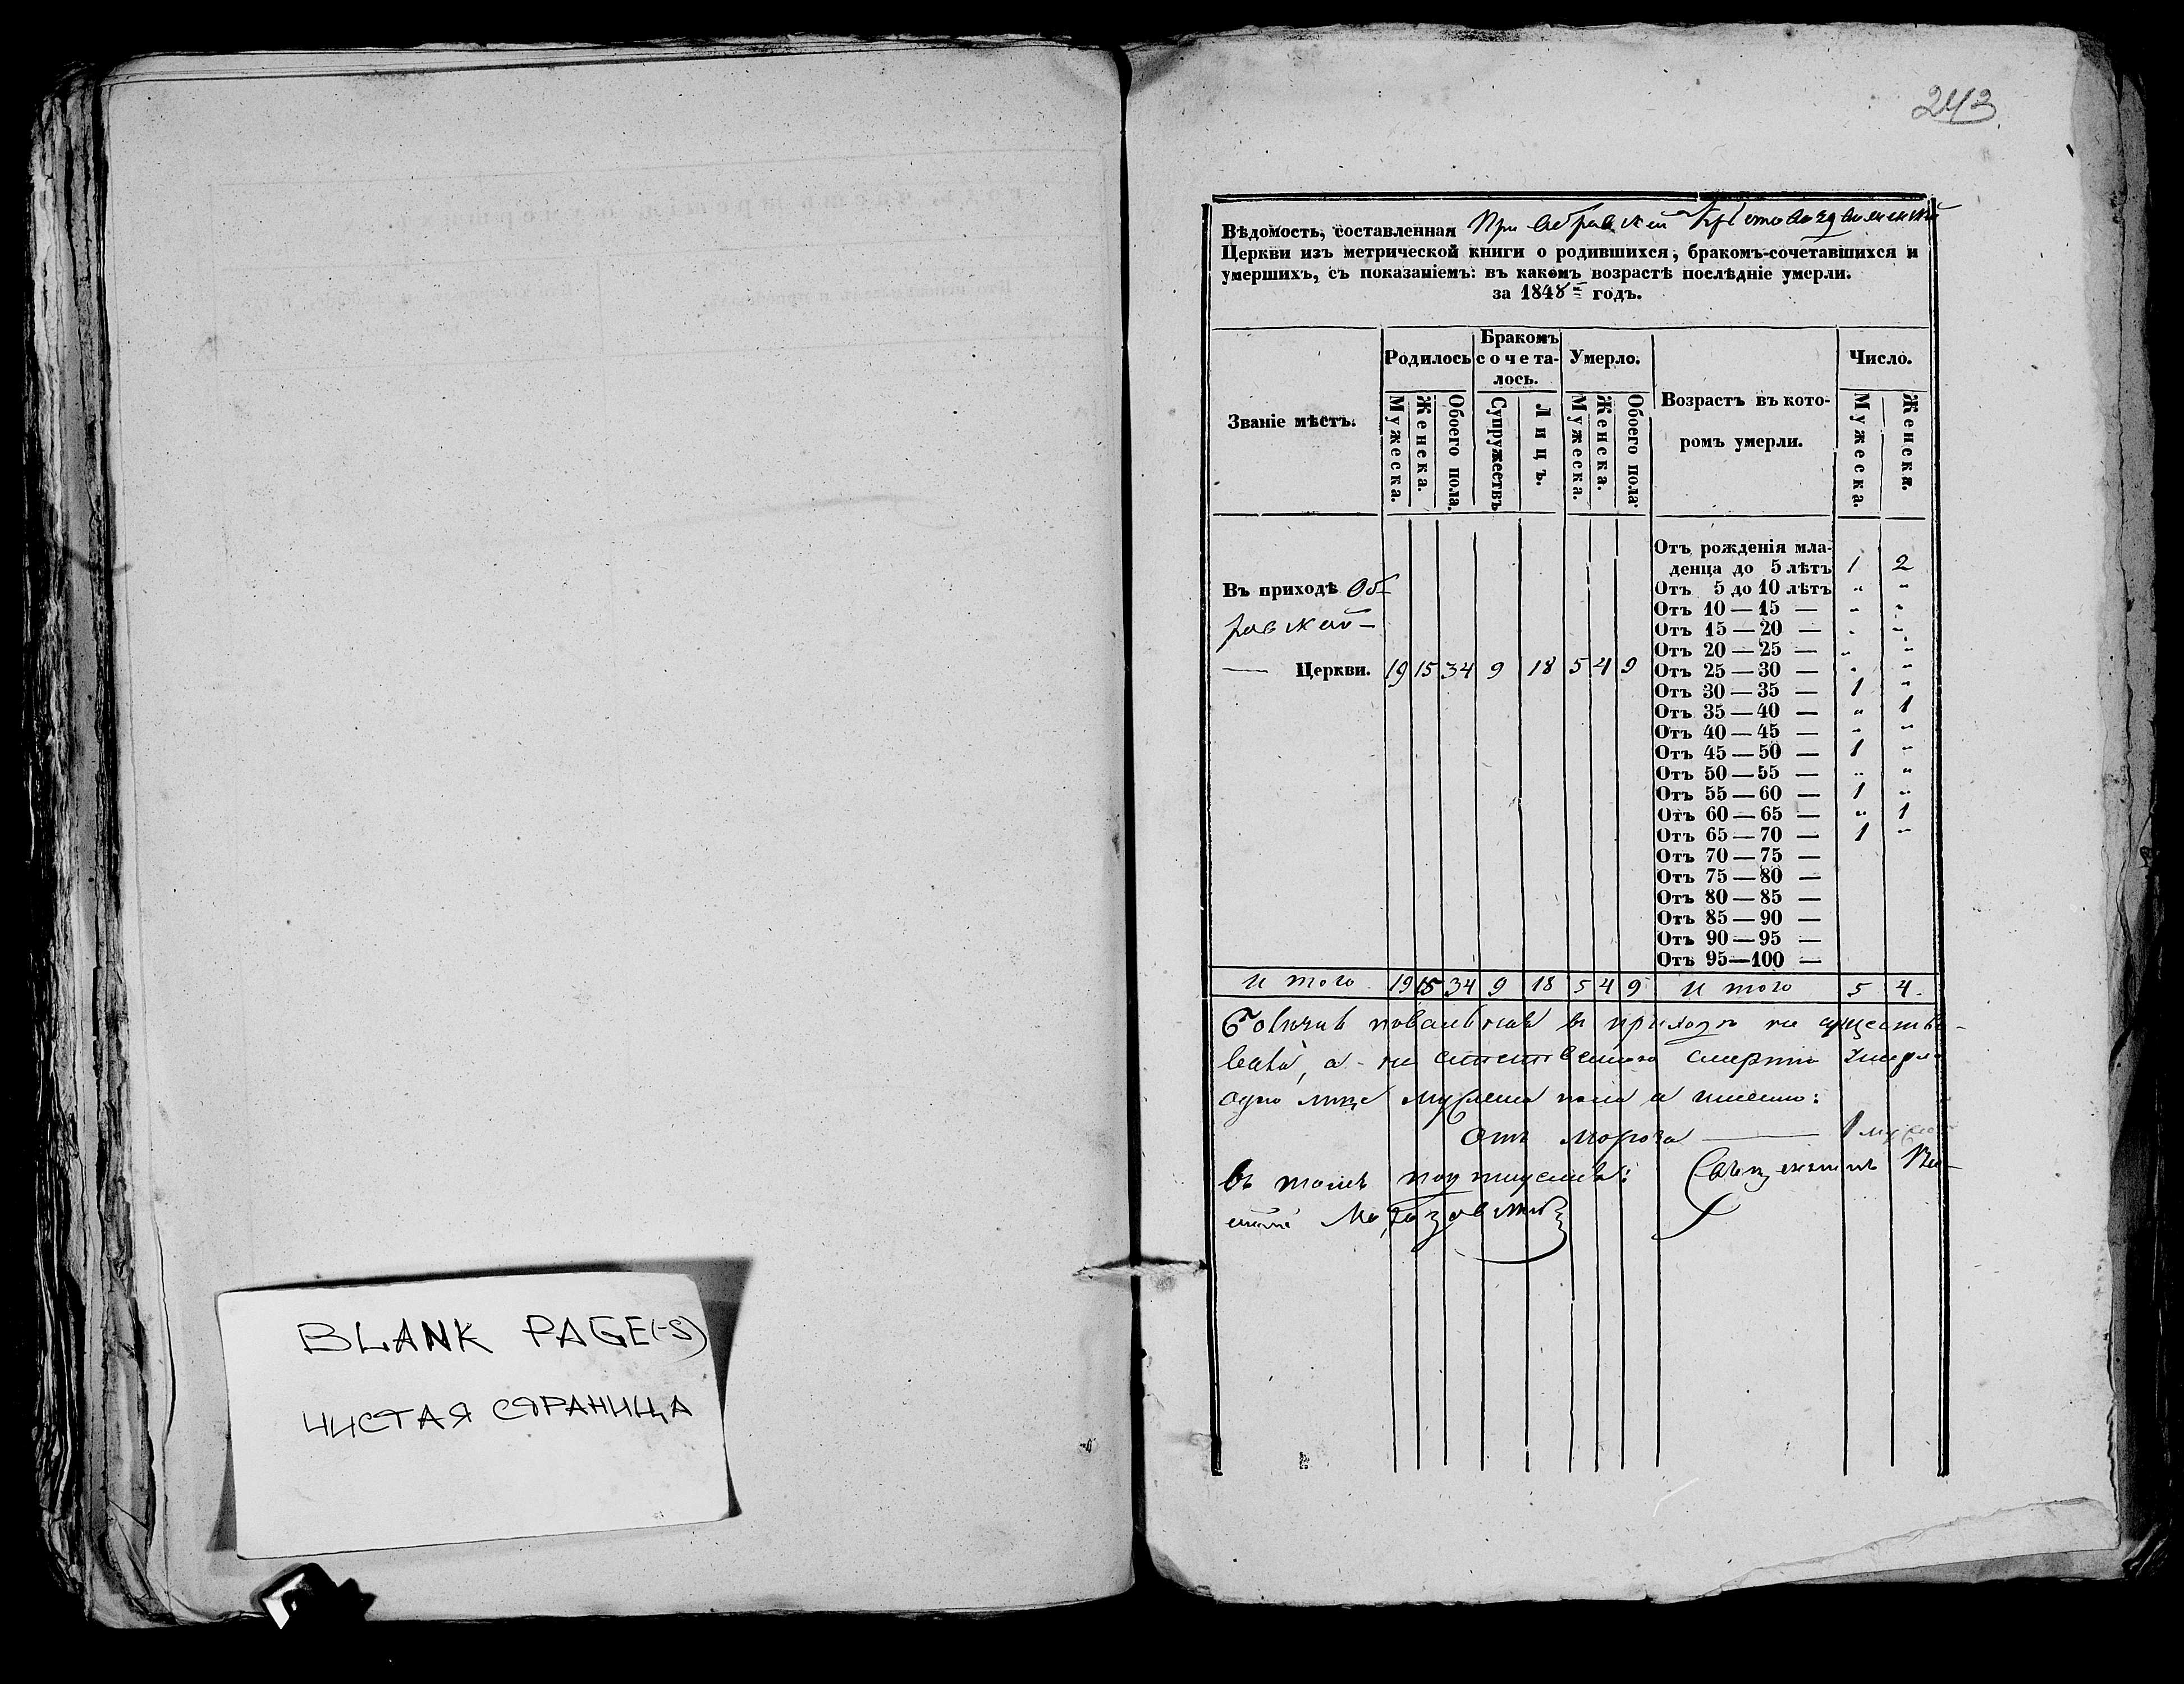 BLANK PAGE(-S)
ЧИСТАЯ СТРАНИЦА
243
Вѣдомость, составленная При Обровской Крестовоздвиженской
Церкви изъ метрической книги о родившихся, бракомъ-сочетавшихся и
умершихъ, съ показаніемъ: въ какомъ возрастѣ послѣдніе умерли.
за 1848 годъ.
Званіе мѣстъ.
Родилось
Мужеска.
Женска.
Обоего пола.
Бракомъ
сочета-
лось.
Супружествъ
Лицъ.
Умерло.
Мужеска.
Женска.
Обоего пола.
Возрастъ въ кото-
ромъ умерли.
Число.
Мужеска.
Женска.
Въ приходѣ Об-
ровской
— Церкви. 19 15 34 9 18 5 4 9
Отъ рожденія мла-
денца до 5 лѣтъ 1 2
Отъ 5 до 10 лѣтъ " "
Отъ 10 — 15 — " "
Отъ 15 — 20 — " "
Отъ 20 — 25 — " "
Отъ 25 — 30 — " "
Отъ 30 — 35 — 1 "
Отъ 35 — 40 — " 1
Отъ 40 — 45 — " "
Отъ 45 — 50 — 1 "
Отъ 50 — 55 — " "
Отъ 55 — 60 — 1 "
Отъ 60 — 65 — " 1
Отъ 65 — 70 — 1 "
Отъ 70 — 75 —
Отъ 75 — 80 —
Отъ 80 — 85 —
Отъ 85 — 90 —
Отъ 90 — 95 —
Отъ 95 — 100 —
Итого 19 15 34 9 18 5 4 9 Итого 5 4.
въ приходѣ не существо-
вало, а не естественною смертію умерло
одно лице мужеска пола а именно:
Отъ мороза — 1
въ томъ подписуемъ: Священникъ